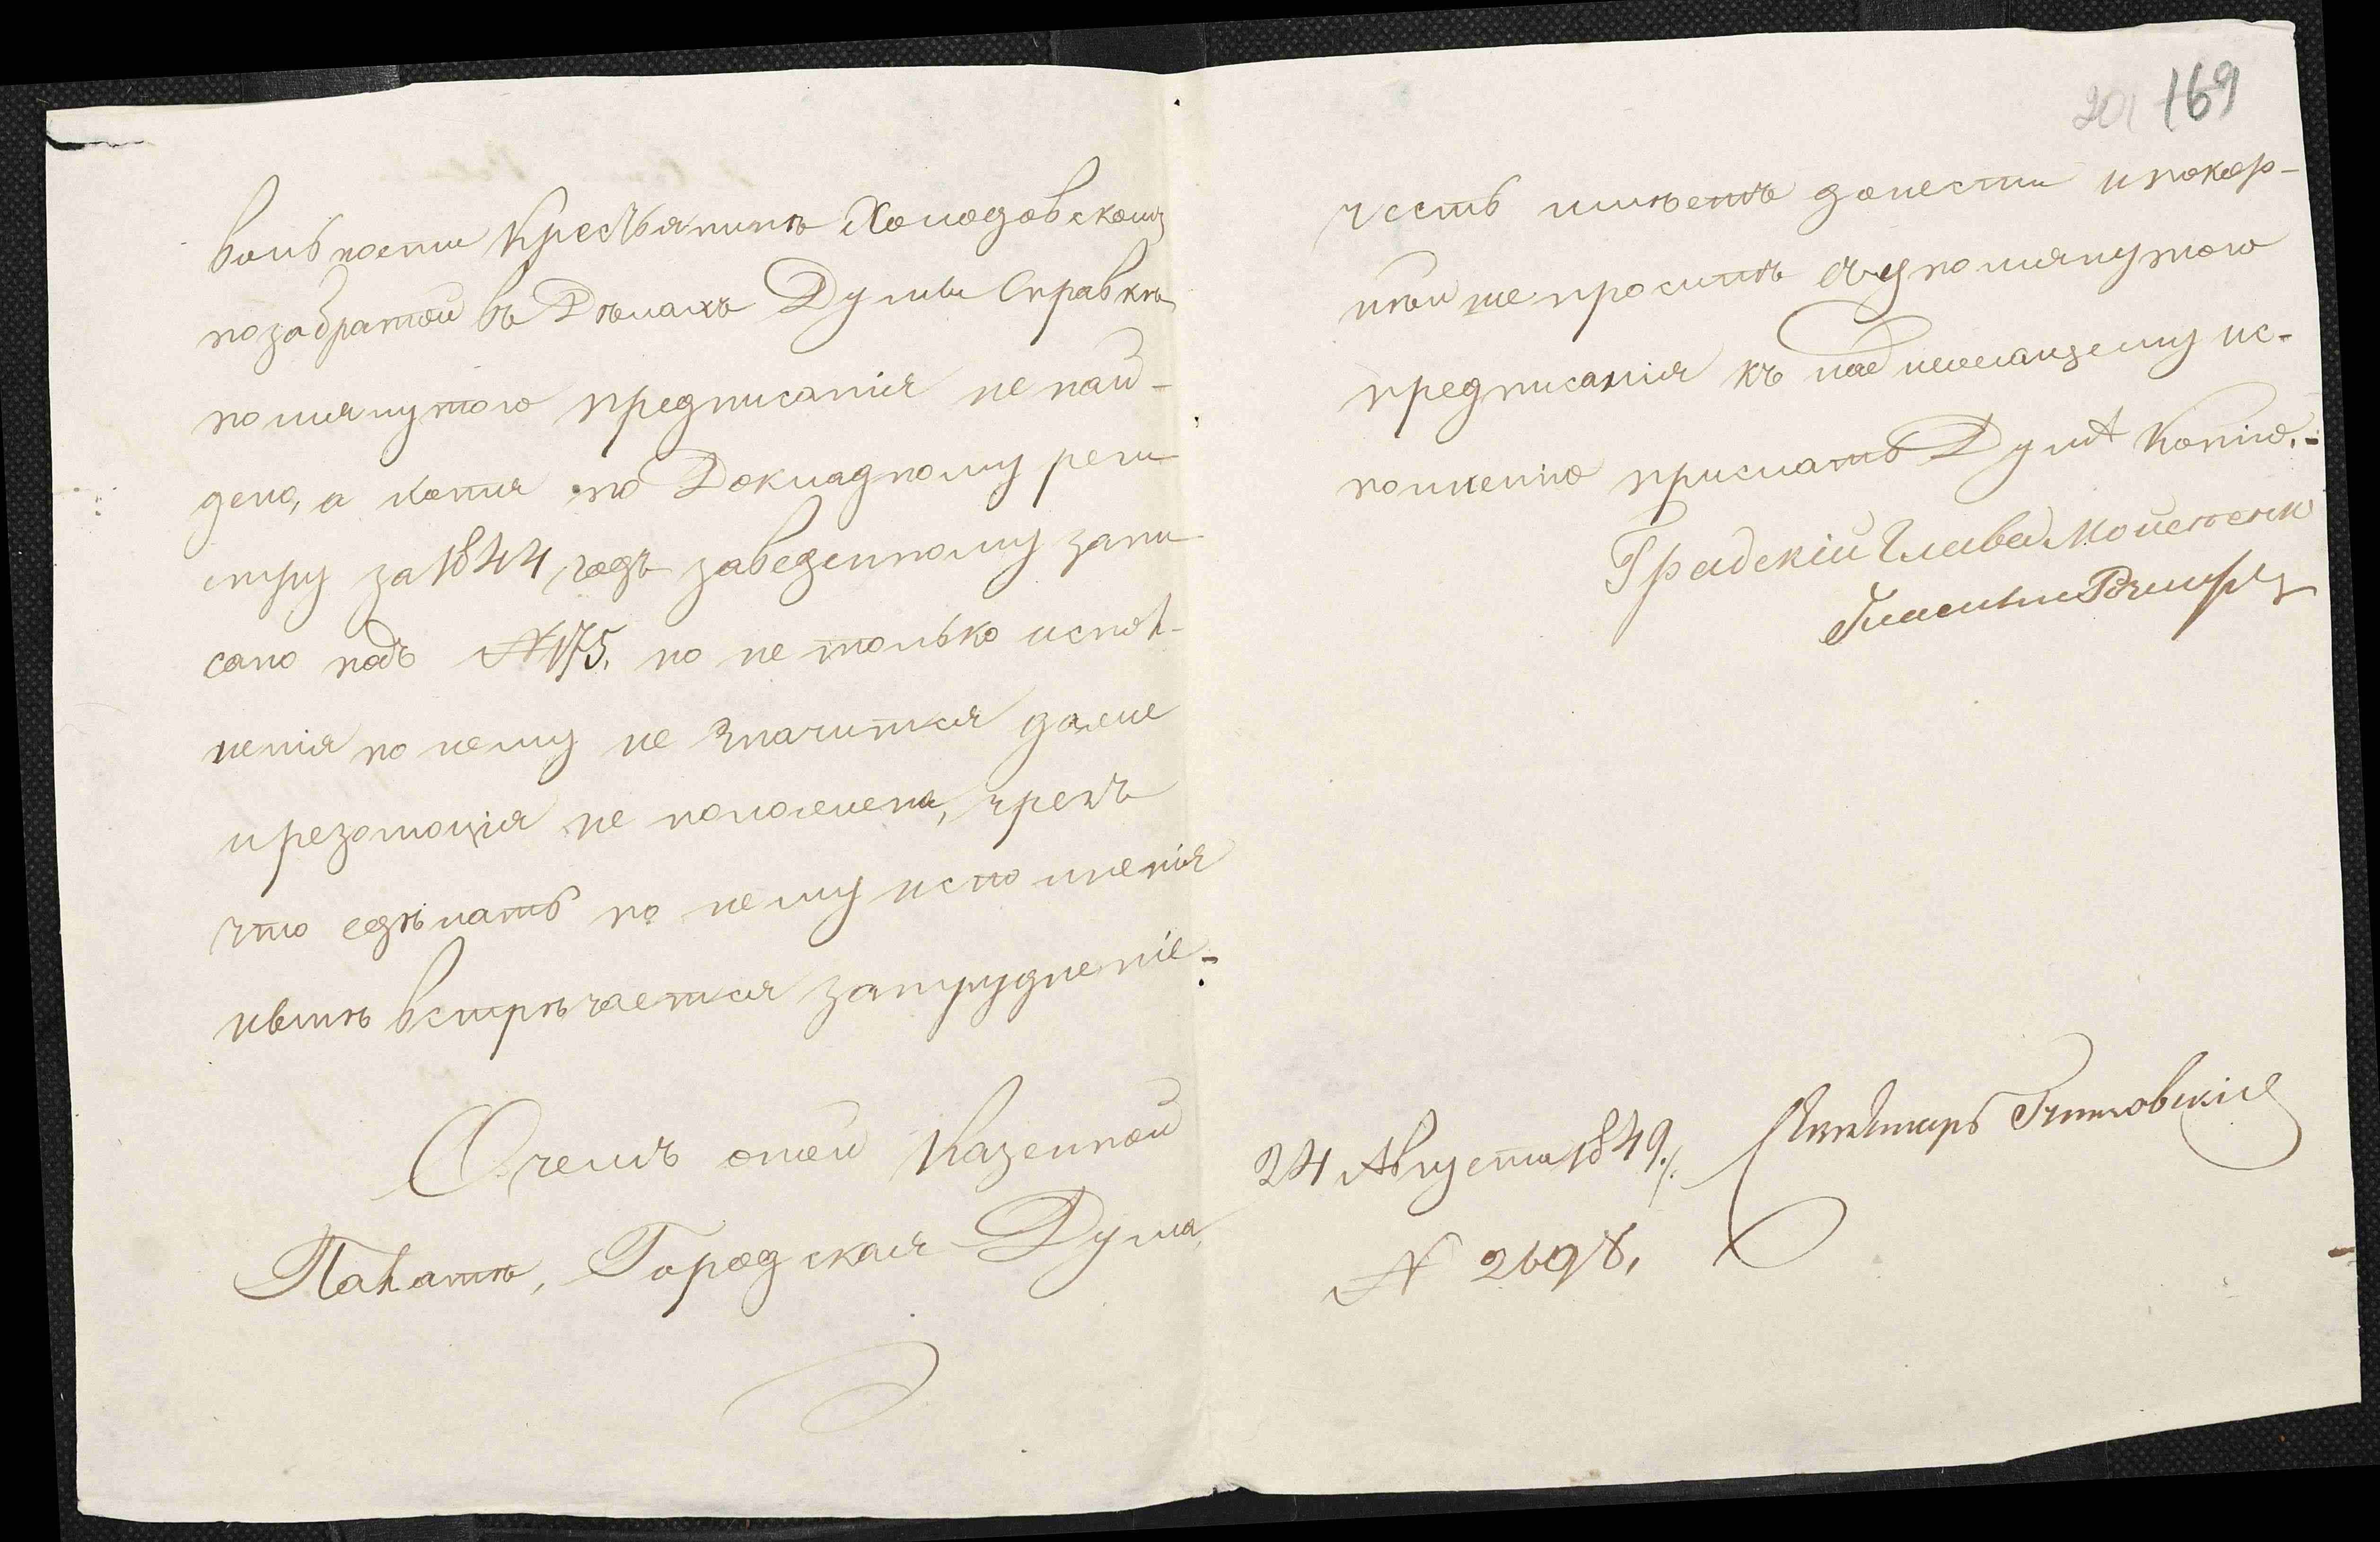 вольности Крестьянинъ Холодовскому
по забратой въ Дѣлахъ Думы Справкѣ
помянутого предписанія не най-
дено, а хотя по Докладному реги-
стру за 1844 годъ заведенному запи
сано подъ №175. но не только испол-
ненія по нему не значится даже
и резолюція не положена, чрезъ
что сдѣлать по нему исполненія
нынѣ встрѣчается затрудненіе.-
О чемъ оной Казенной
Палатѣ, Городская Дума,
201 169
честь имѣетъ донести и покор-
нѣйше проситъ съ упомянутого
предписанія къ надлежащему ис-
полненію прислать Думѣ Копію.-
Градскій Глава
Гласный
24 Августа 1849.
Секретарь
№ 2698.